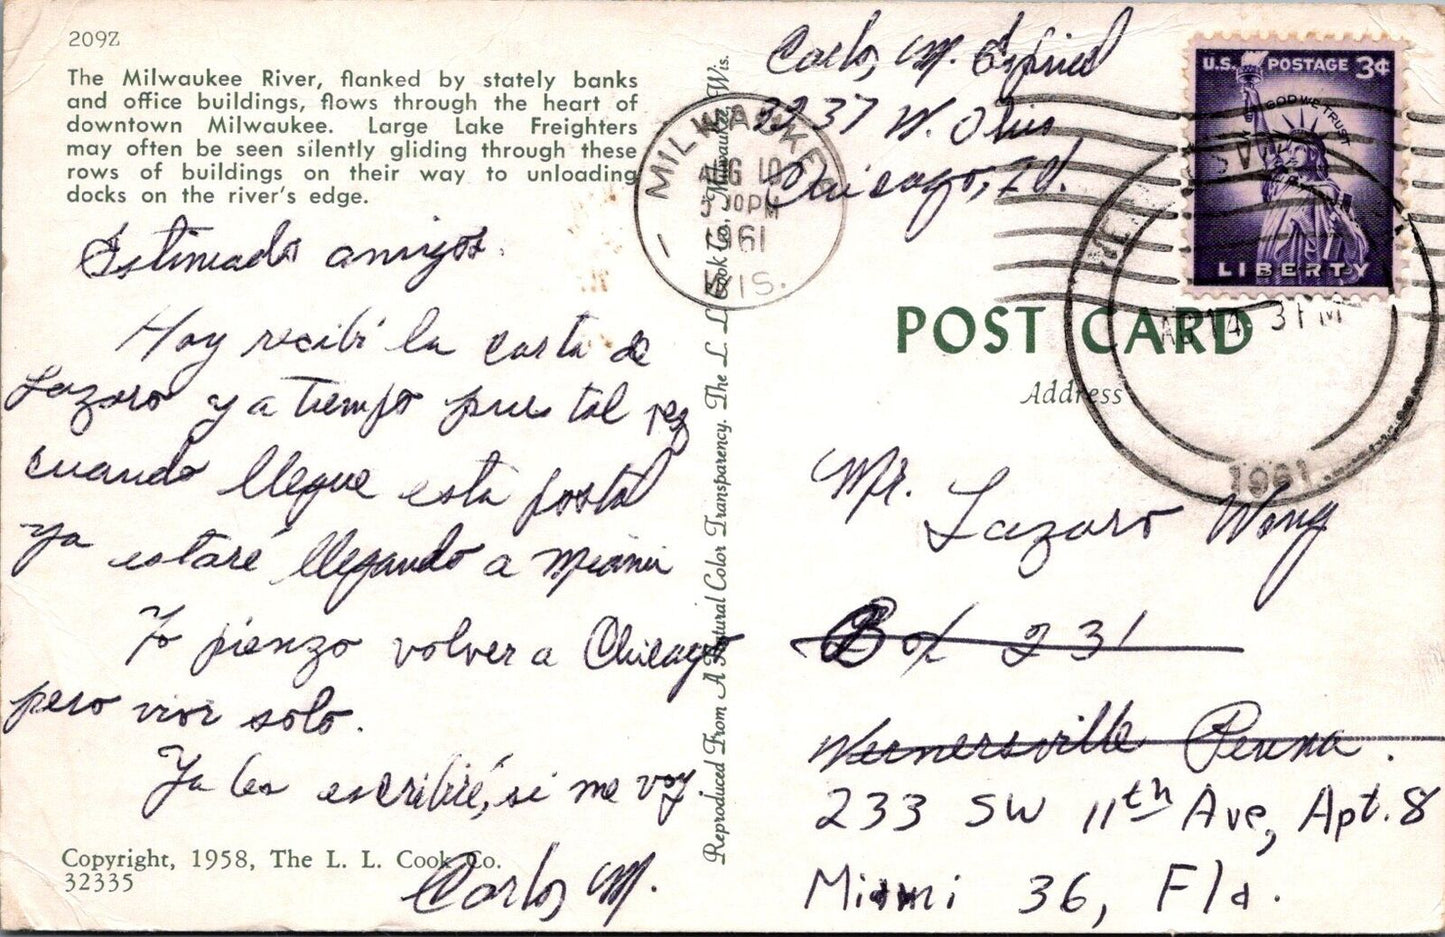 209Z
The Milwaukee River, flanked by stately banks
and office buildings, flows through the heart of
downtown Milwaukee. Large Lake Freighters
may often be seen silently gliding through these
rows of buildings on their way to unloading
docks on the river's edge.
Estimados amigos.
Hoy recibí la carta de
Lazaro y a tiempo pues tal vez
cuando llegue esta postal
ya estaré llegando a Miami
Yo pienzo volver a Chicago
pero vivir solo.
Ya les escribiré, si me voy.
Carlos M.
Copyright, 1958, The L. L. Cook Co.
32335
Reproduced From A Natural Color Transparency. The L. L. Cook Co., Milwaukee, Wis.
Carlos M.
2237 W. Ohio
Chicago, Ill.
MILWAUKEE
AUG 10
PM
1961
WIS.
U.S. POSTAGE 3¢
IN GOD WE TRUST
LIBERTY
14 3 PM
1961
POST CARD
Address
Mr. Lazaro Wong
Box 231
Wernersville Penna.
233 SW 11th Ave, Apt. 8
Miami 36, Fla.